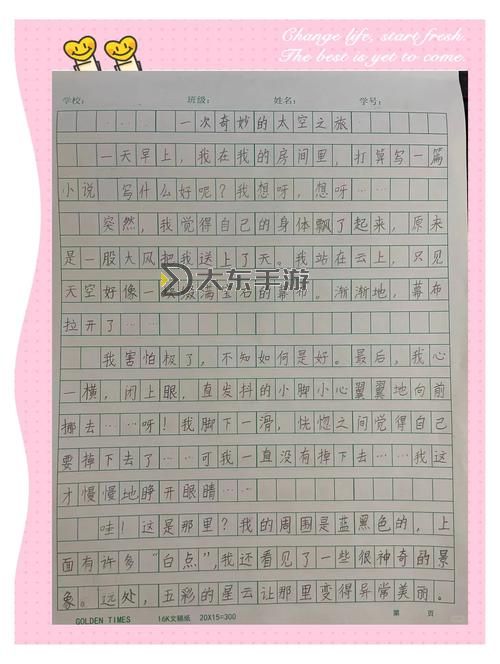 Change life, start fresh.
The best is yet to come.
学校： 班级： 姓名： 学号：
一次奇妙的太空之旅
一天早上，我在我的房间里，打算写一篇
小说 写什么好呢？我想呀，想呀……
突然，我觉得自己的身体飘了起来，原来
是一股大风把我送上了天。我站在云上，只见
天空好像一 满宝石的幕布。渐渐地，幕布
大东手游
拉开了……
我害怕极了，不知如何是好。最后，我心
一横，闭上眼，直发抖的小脚小心翼翼地向前
挪去……呀！我脚下一滑，恍惚之间觉得自己
要掉下去了……可我一直没有掉下去……我这
才慢慢地睁开眼睛……
哇！这是那里？我的周围是蓝黑色的，上
面有许多“白点”，我还看见了一些很神奇的景
象。远处，五彩的星云让那里变得异常美丽。
GOLDEN TIMES 16K文稿纸 20X15=300 第 页